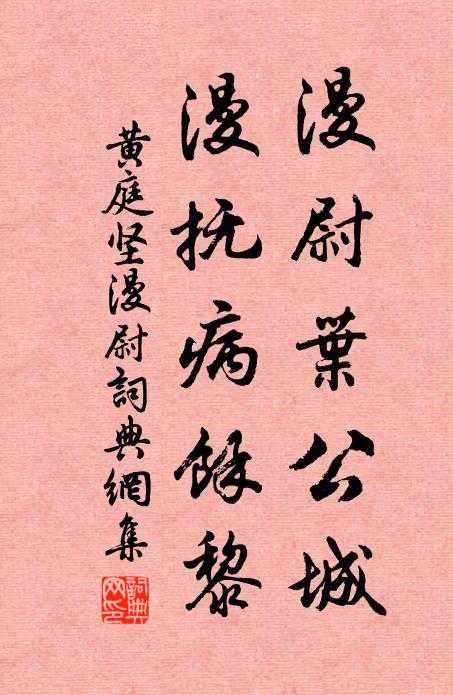 漫尉葉公城
漫抚病餘黎
黄庭坚漫尉詞典網集
詞典網印